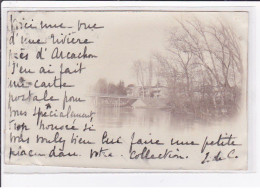 Voici une vue
d'une rivière
près d'Arcachon
J'en ai fait
une carte
postale pour
vous spécialement
trop honorée si
vous voulez bien lui faire une petite
place dans votre Collection. J. de C.